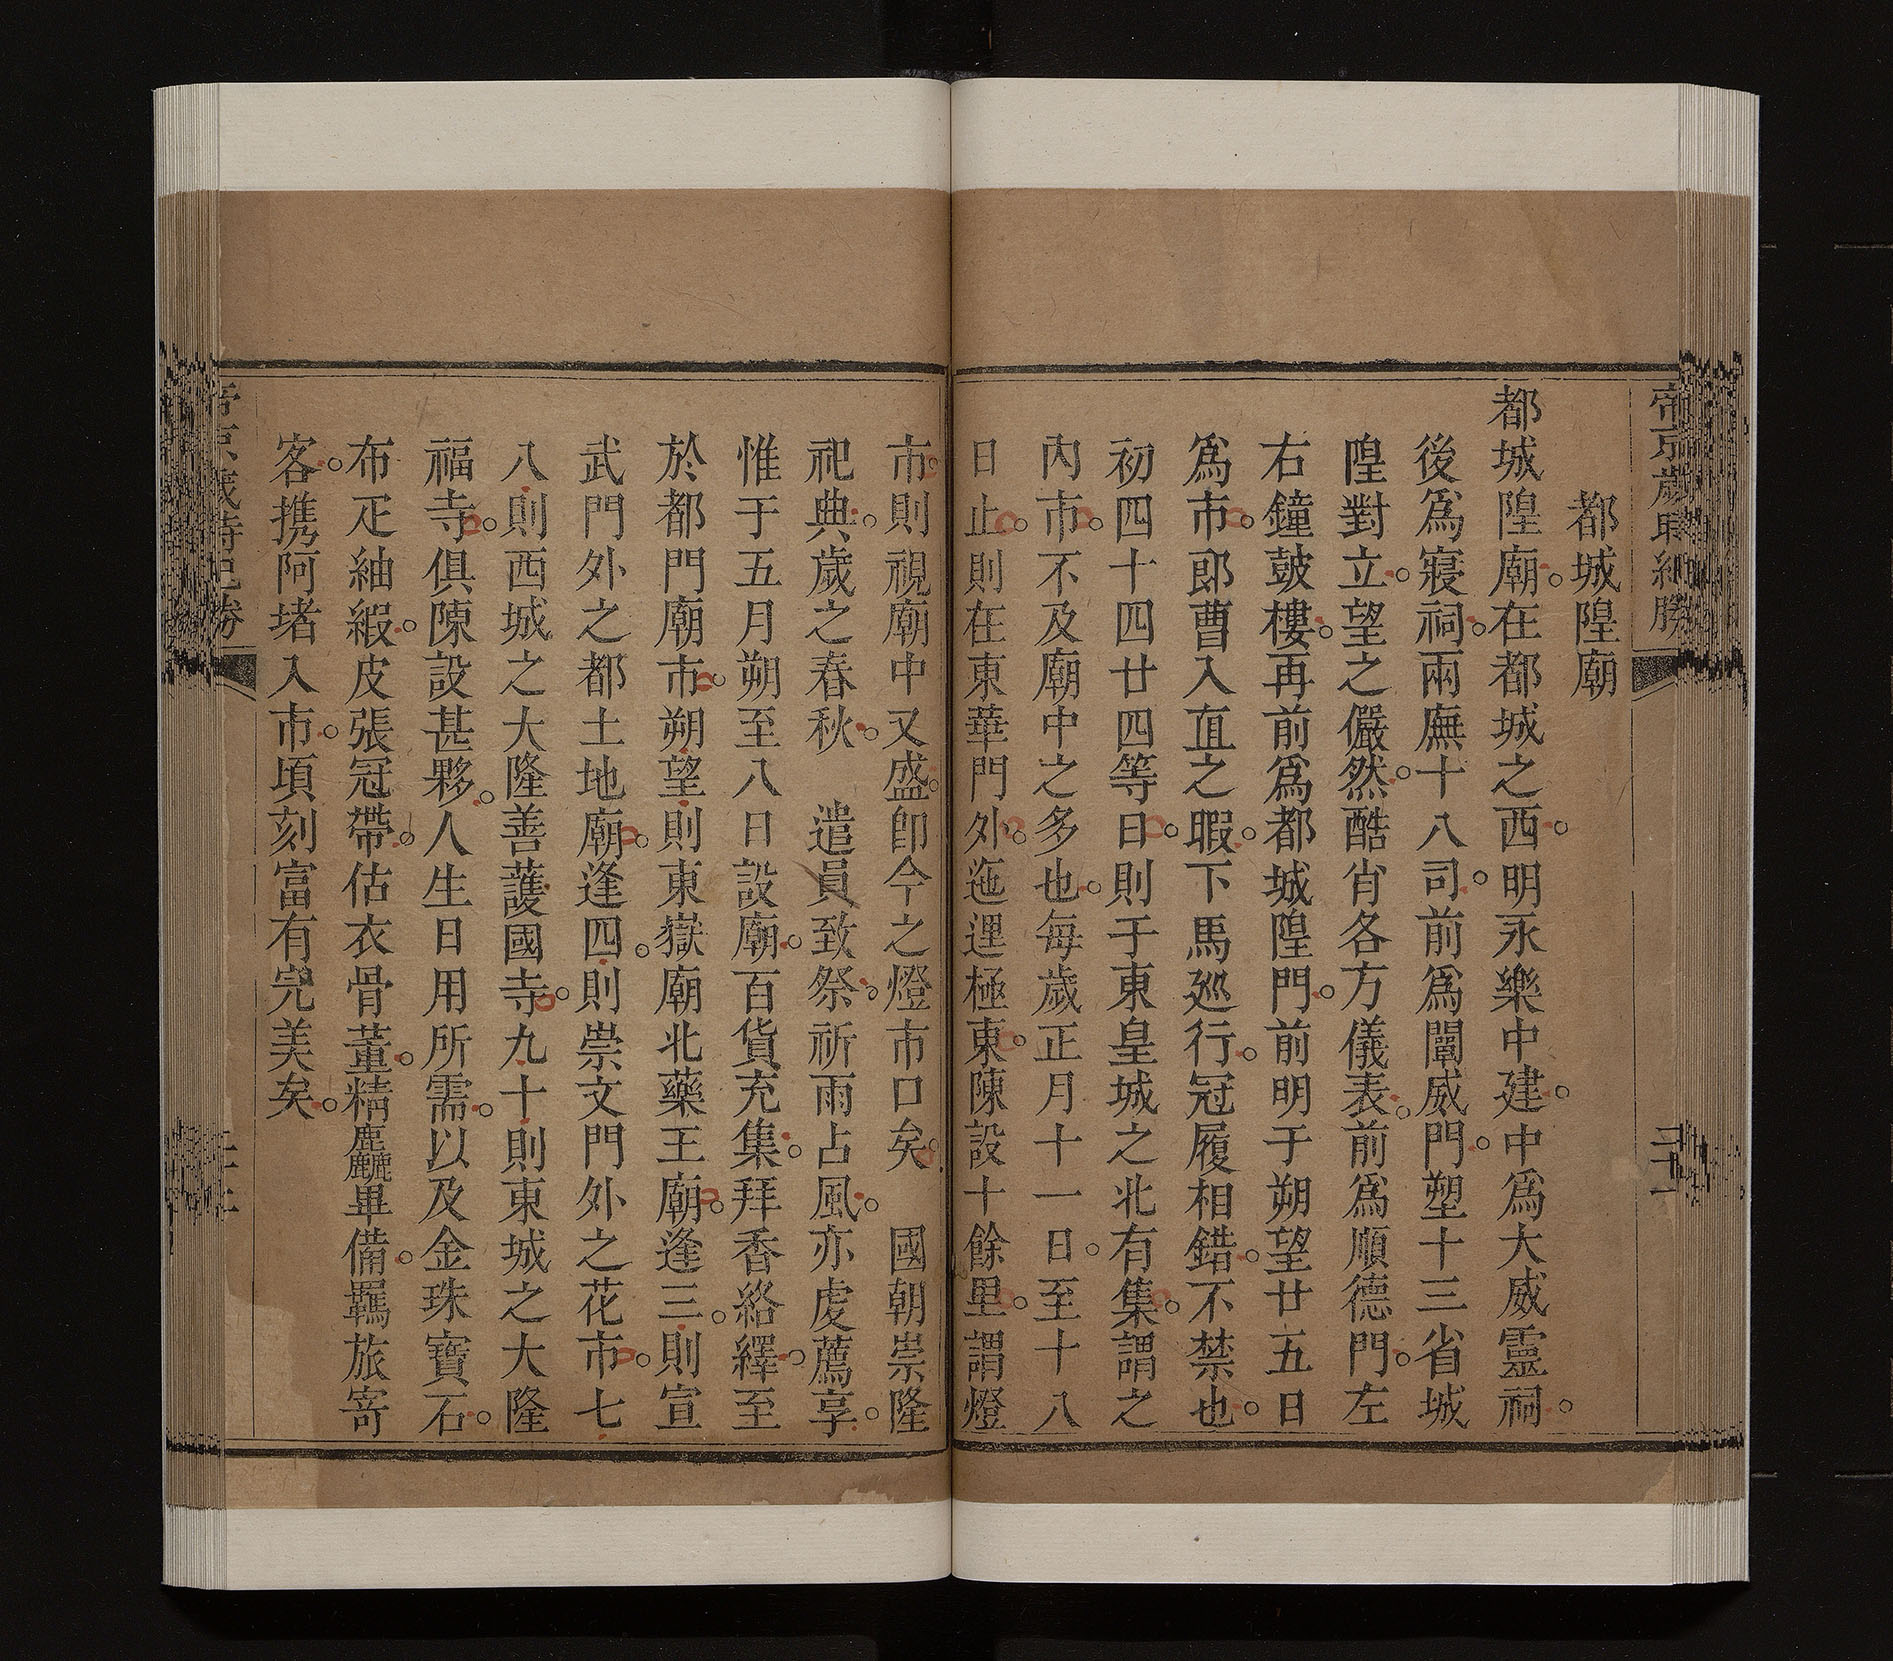 帝京歲時紀勝
都城隍廟
都城隍廟。在都城之西。明永樂中建。中爲大威靈祠。
後爲寢祠。兩廡十八司。前爲闡威門。塑十三省城
隍對立。望之儼然。酷肖各方儀表。前爲順德門。左
右鐘鼓樓。再前爲都城隍門。前明于朔望廿五日
爲市。郎曹入直之暇。下馬廵行。冠履相錯。不禁也。
初四十四廿四等日。則于東皇城之北有集。謂之
內市。不及廟中之多也。每歲正月十一日。至十八
日止。則在東華門外。迤邐極東。陳設十餘里。謂燈
市。則視廟中又盛。卽今之燈市口矣。 國朝崇隆
祀典。歲之春秋。 遣員致祭。祈雨占風。亦虔薦享。
惟于五月朔至八日設廟。百貨充集。拜香絡繹。至
於都門廟市。朔望則東嶽廟北藥王廟。逢三。則宣
武門外之都土地廟。逢四。則崇文門外之花市。七
八則西城之大隆善護國寺。九十則東城之大隆
福寺。俱陳設甚夥。人生日用所需。以及金珠寶石。
布疋紬緞。皮張冠帶。估衣骨董。精麤畢備。羈旅寄
客。携阿堵入市。頃刻富有完美矣。